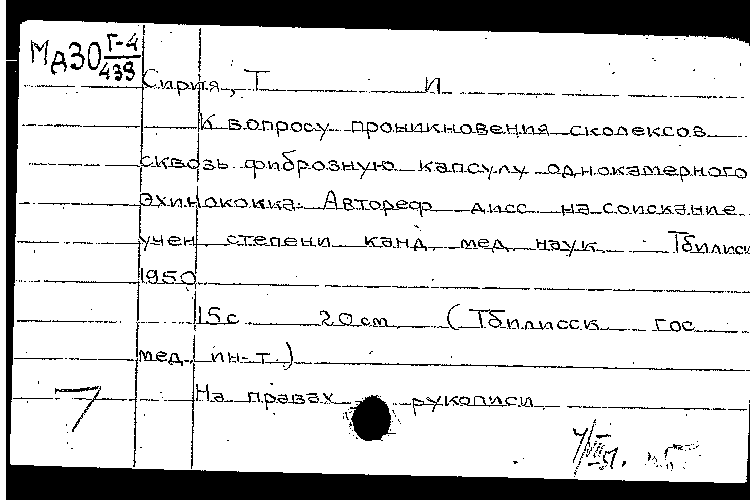 МД30 Г-4
439
Сирия, Т И
К вопросу проникновения сколексов
сквозь фиброзную капсулу однокамерного
эхинококка. Автореф дисс на соискание
учен степени канд мед наук Тбилиси
1950
15с 20см (Тбилисск гос
мед. ин-т.)
На правах рукописи